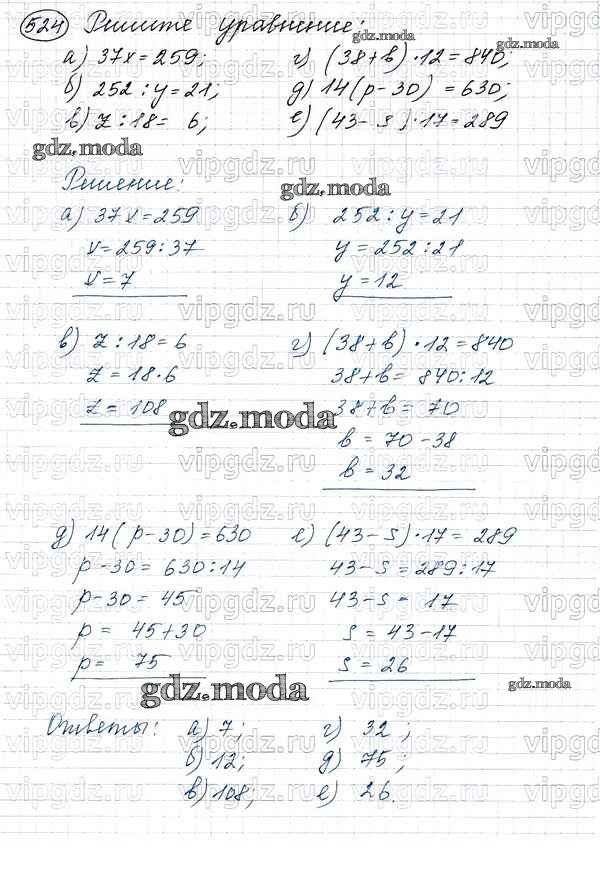 524 Решите уравнение:
а) 37x = 259;
б) 252 : y = 21;
в) z : 18 = 6;
г) (38 + b) · 12 = 840;
д) 14(p - 30) = 630;
е) (43 - s) · 17 = 289
gdz.moda
gdz.moda
gdz.moda
Решение:
gdz.moda
а) 37x = 259
x = 259 : 37
x = 7
б) 252 : y = 21
y = 252 : 21
y = 12
в) z : 18 = 6
z = 18 · 6
z = 108
gdz.moda
г) (38 + b) · 12 = 840
38 + b = 840 : 12
38 + b = 70
b = 70 - 38
b = 32
д) 14(p - 30) = 630
p - 30 = 630 : 14
p - 30 = 45
p = 45 + 30
p = 75
gdz.moda
е) (43 - s) · 17 = 289
43 - s = 289 : 17
43 - s = 17
s = 43 - 17
s = 26
gdz.moda
Ответы: а) 7;
б) 12;
в) 108;
г) 32;
д) 75;
е) 26.
vipgdz.ru